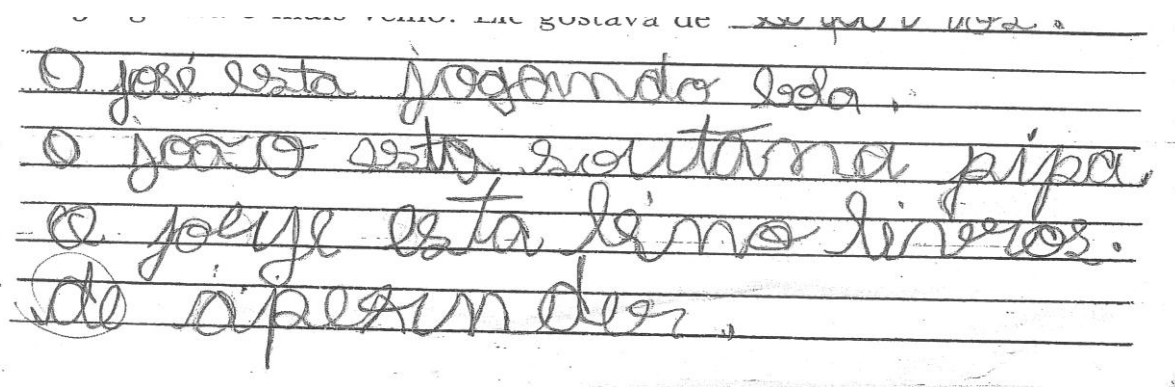 mais velho. Ele gostava de
O josé esta jogando bola.
O joão esta soutāna pipa,
O jorge esta lêmo linvros.
de